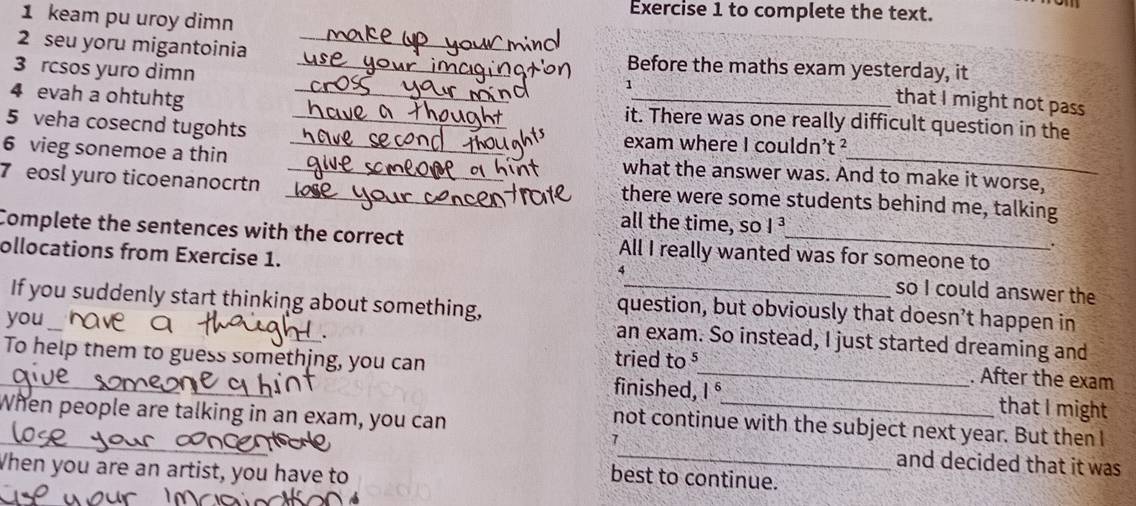 1 keam pu uroy dimn make up your mind
2 seu yoru migantoinia use your imagination
3 rcsos yuro dimn cross your mind
4 evah a ohtuhtg have a thought
5 veha cosecnd tugohts have second thoughts
6 vieg sonemoe a thin give someone a hint
7 eosl yuro ticoenanocrtn lose your concentrate
Complete the sentences with the correct
ollocations from Exercise 1.
If you suddenly start thinking about something,
you have a thought.
To help them to guess something, you can
give someone a hint
When people are talking in an exam, you can
lose your concentrate
When you are an artist, you have to
use your imagination.
Exercise 1 to complete the text.
Before the maths exam yesterday, it
1 that I might not pass
it. There was one really difficult question in the
exam where I couldn't 2
what the answer was. And to make it worse,
there were some students behind me, talking
all the time, so I 3 .
All I really wanted was for someone to
4 so I could answer the
question, but obviously that doesn't happen in
an exam. So instead, I just started dreaming and
tried to 5 . After the exam
finished, I 6 that I might
not continue with the subject next year. But then I
7 and decided that it was
best to continue.